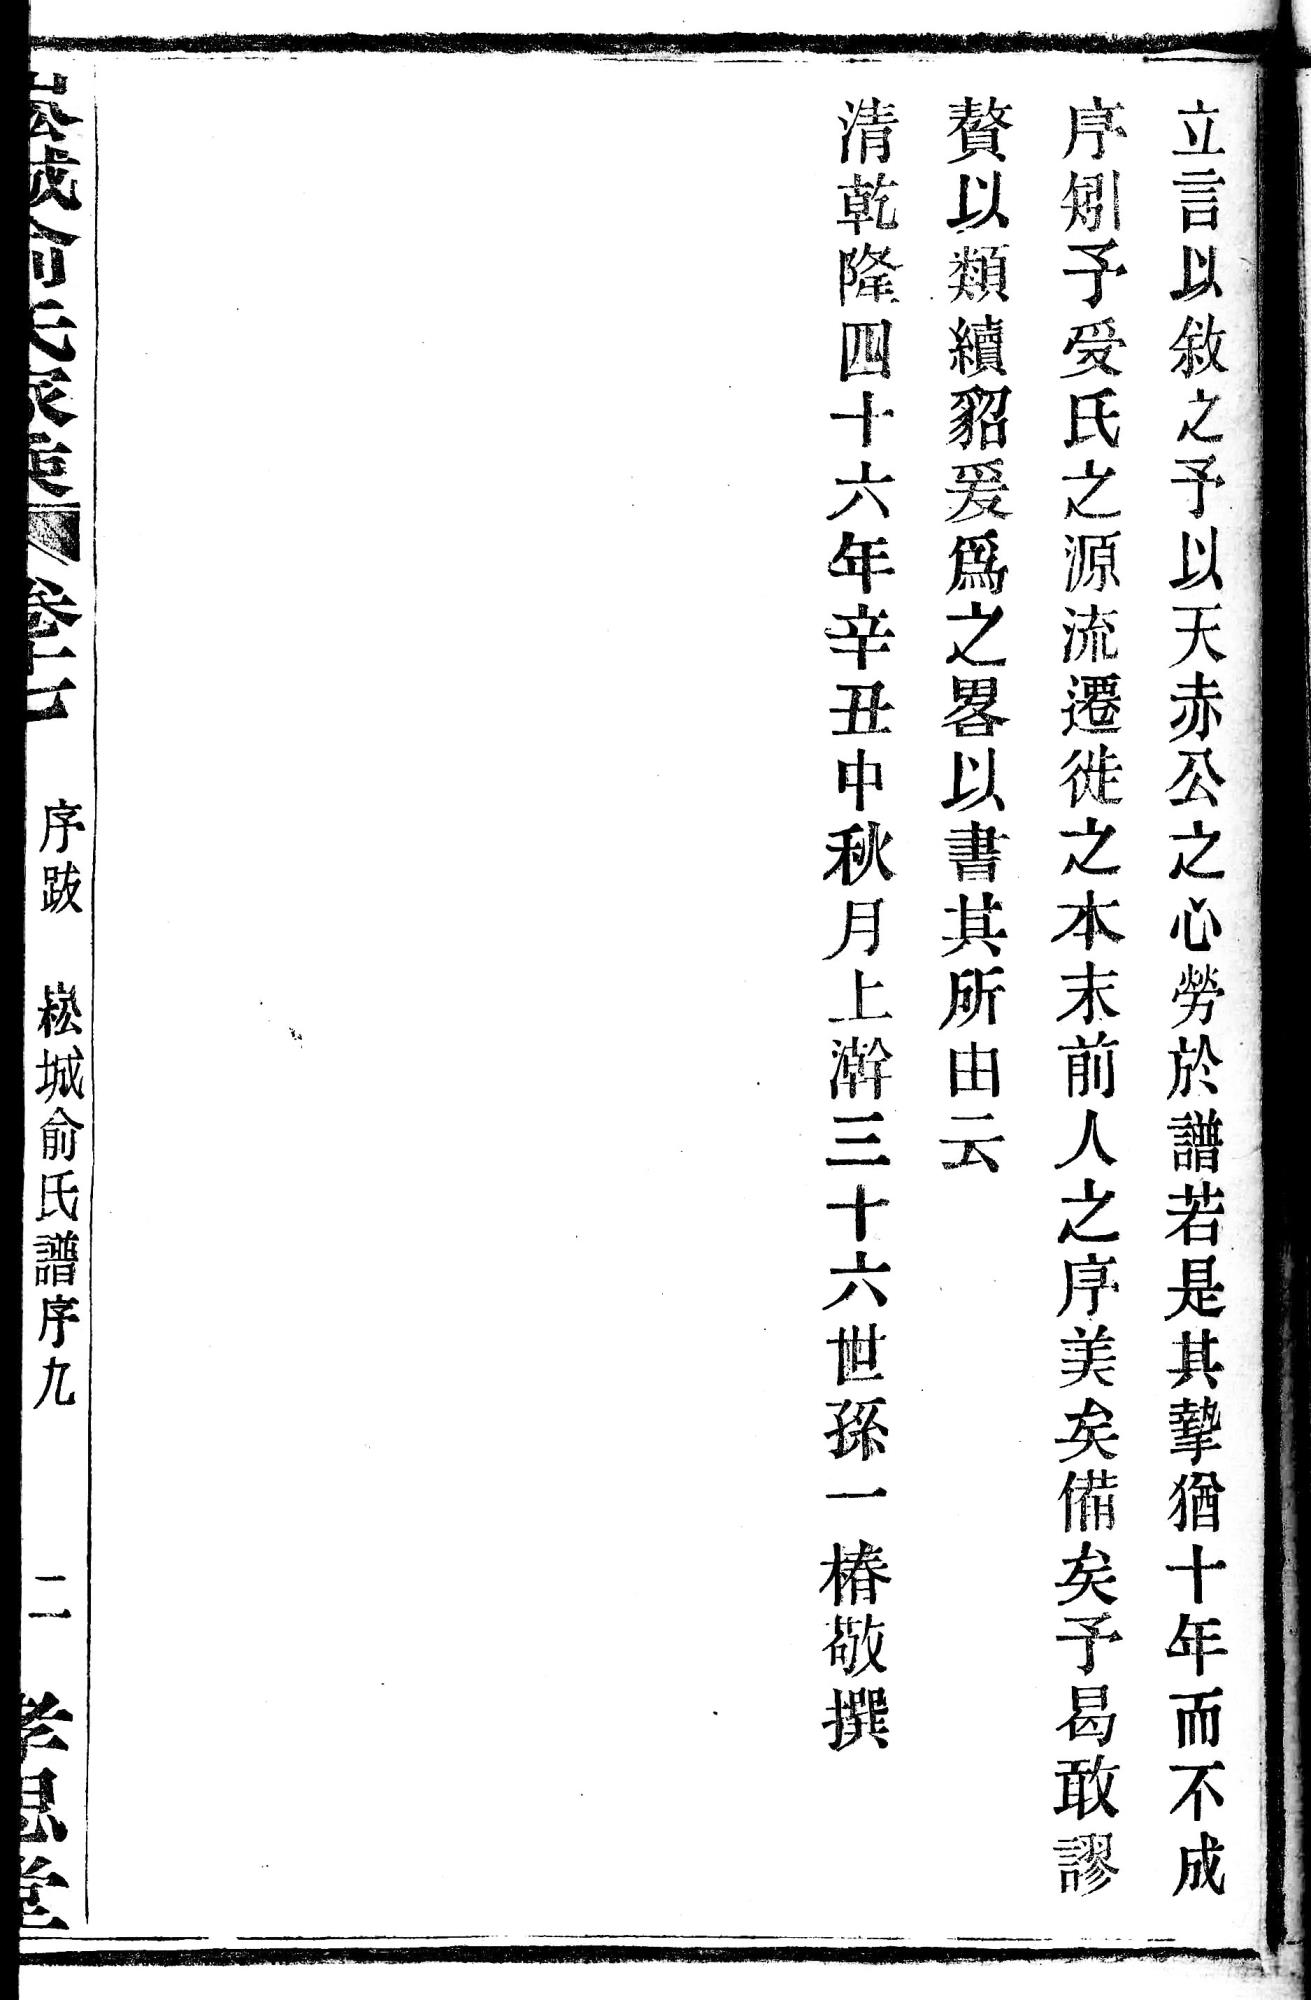 立言以敘之予以天赤公之心勞於譜若是其摯猶十年而不成
序矧予受氏之源流遷徙之本末前人之序美矣備矣予曷敢謬
贅以類續貂爰爲之畧以書其所由云
清乾隆四十六年辛丑中秋月上澣三十六世孫一椿敬撰
崧城俞氏家乘 卷十七 序跋 崧城俞氏譜序九 二 孝思堂